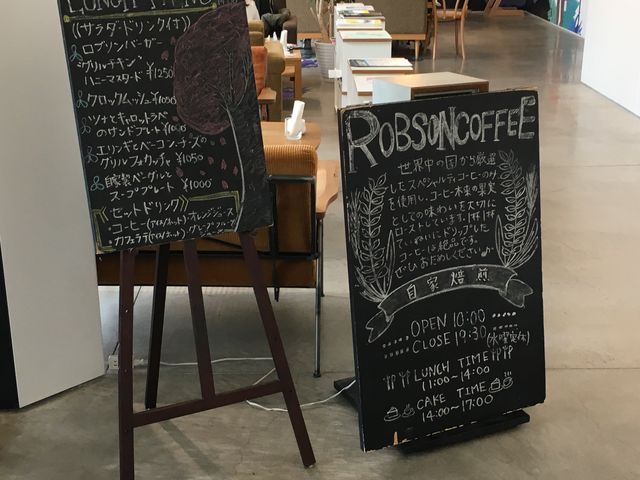 ((サラダ・ドリンク付))
ロブソンバーガー
グリルチキン
ハニーマスタード ¥1250
クロックムッシュ ¥1000
ツナとキャロットラペ
のサンドプレート ¥1000
エリンギとベーコンチーズの
グリルフォカッチャ ¥1050
自家製ベーグルと
スーププレート ¥1000
セットドリンク
・コーヒー(アイス/ホット)・オレンジジュース
・カフェラテ(アイス/ホット)・グレープフルーツ
ROBSONCOFFEE
世界中の国から厳選
したスペシャルティコーヒーのみ
を使用し、コーヒー本来の果実
としての味わいを大切に
ローストしています。1杯1杯
ていねいにドリップした
コーヒーは絶品です。
ぜひおためしください♪
自家焙煎
OPEN 10:00
CLOSE 19:30
(水曜定休)
LUNCH TIME
11:00~14:00
CAKE TIME
14:00~17:00